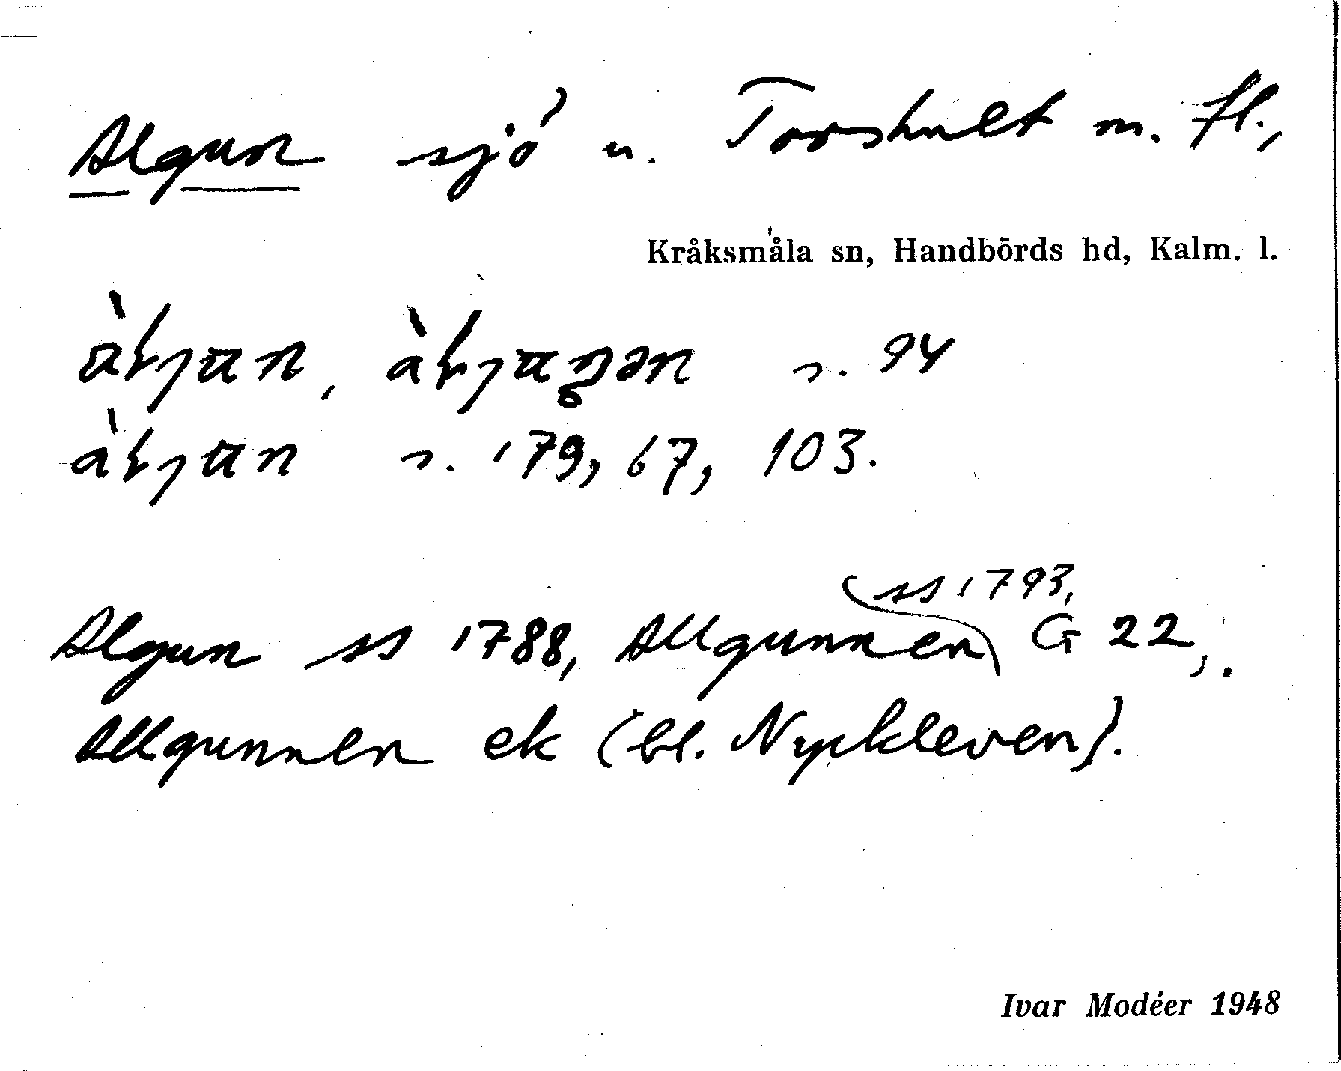 Algun sjö u. Torshult m. fl.,
Kråksmåla sn, Handbörds hd, Kalm. l.
s. 94
s. 179, 67, 103.
ss 1793,
Algun ss 1788, Allgunnen G 22,.
Allgunnen ek (bl. Nyckleven).
Ivar Modéer 1948